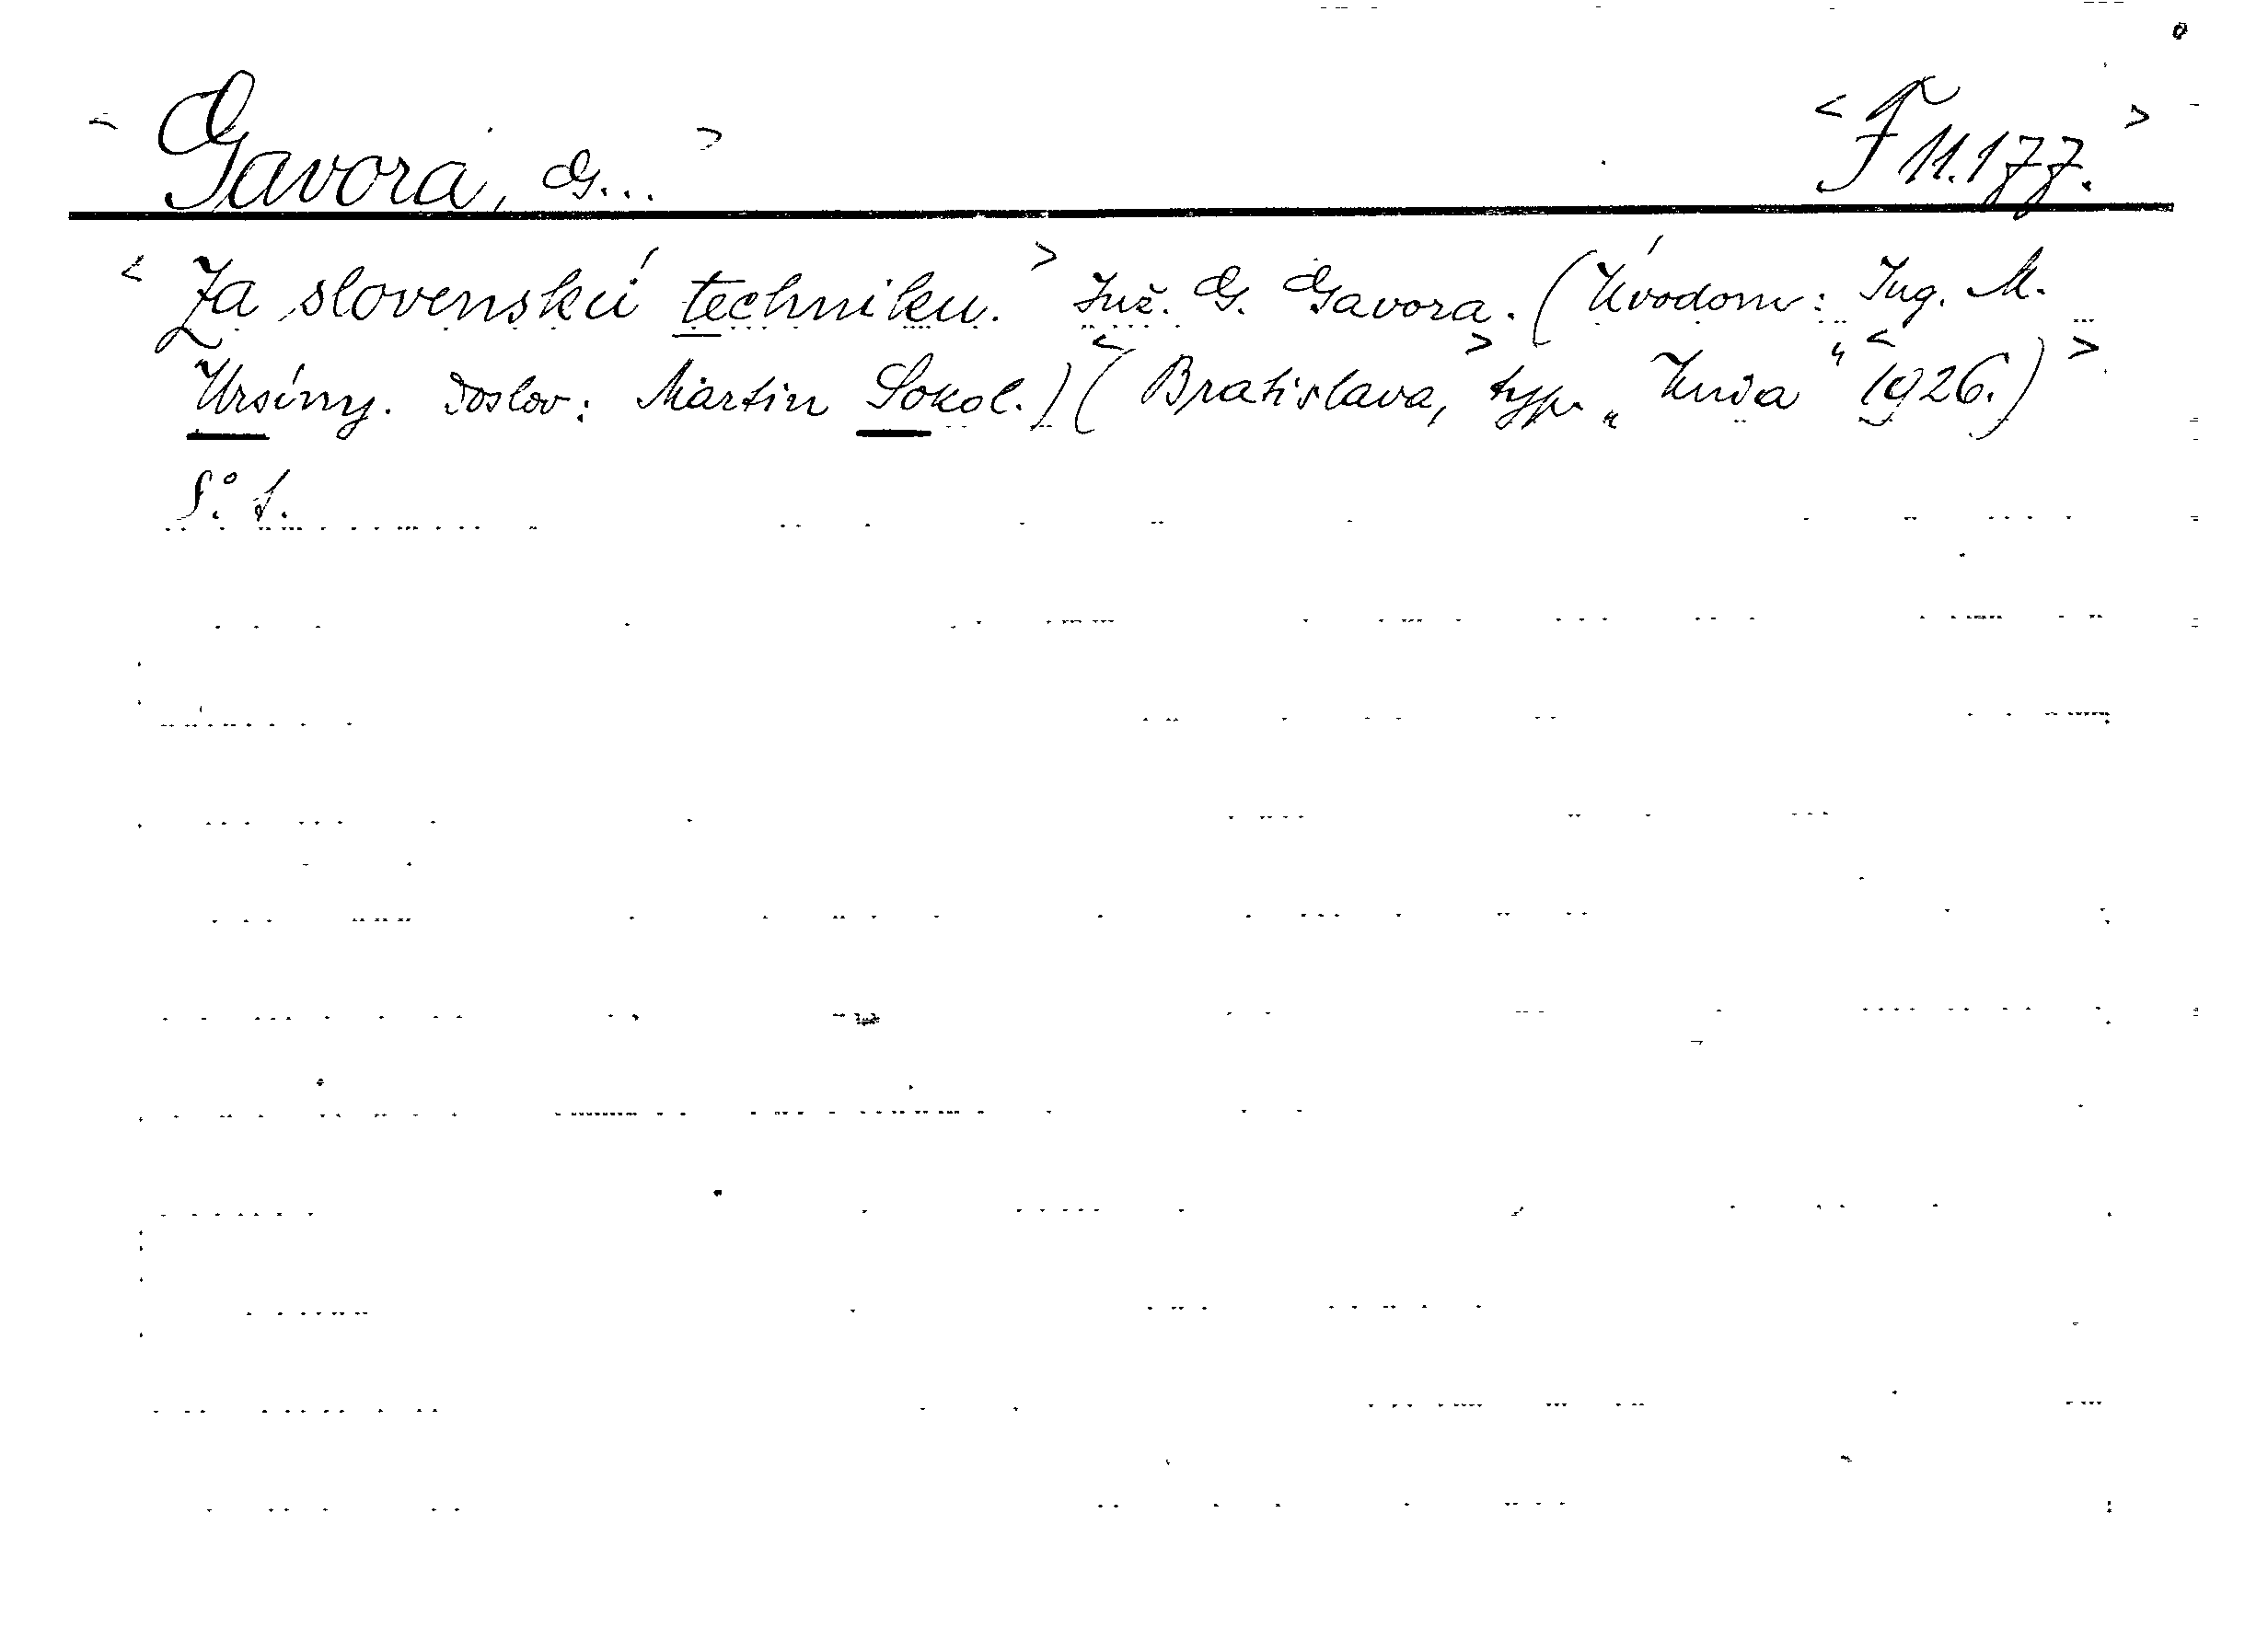 < Gavora, G... > < F 11.177. >
< Za slovenskú techniku. > Inž. G. Gavora. (Úvodom: Ing. M.
Ursíny. Doslov: Martin Sokol.) < (Bratislava, > typ. „ " < 1926.) >
8.° 1.